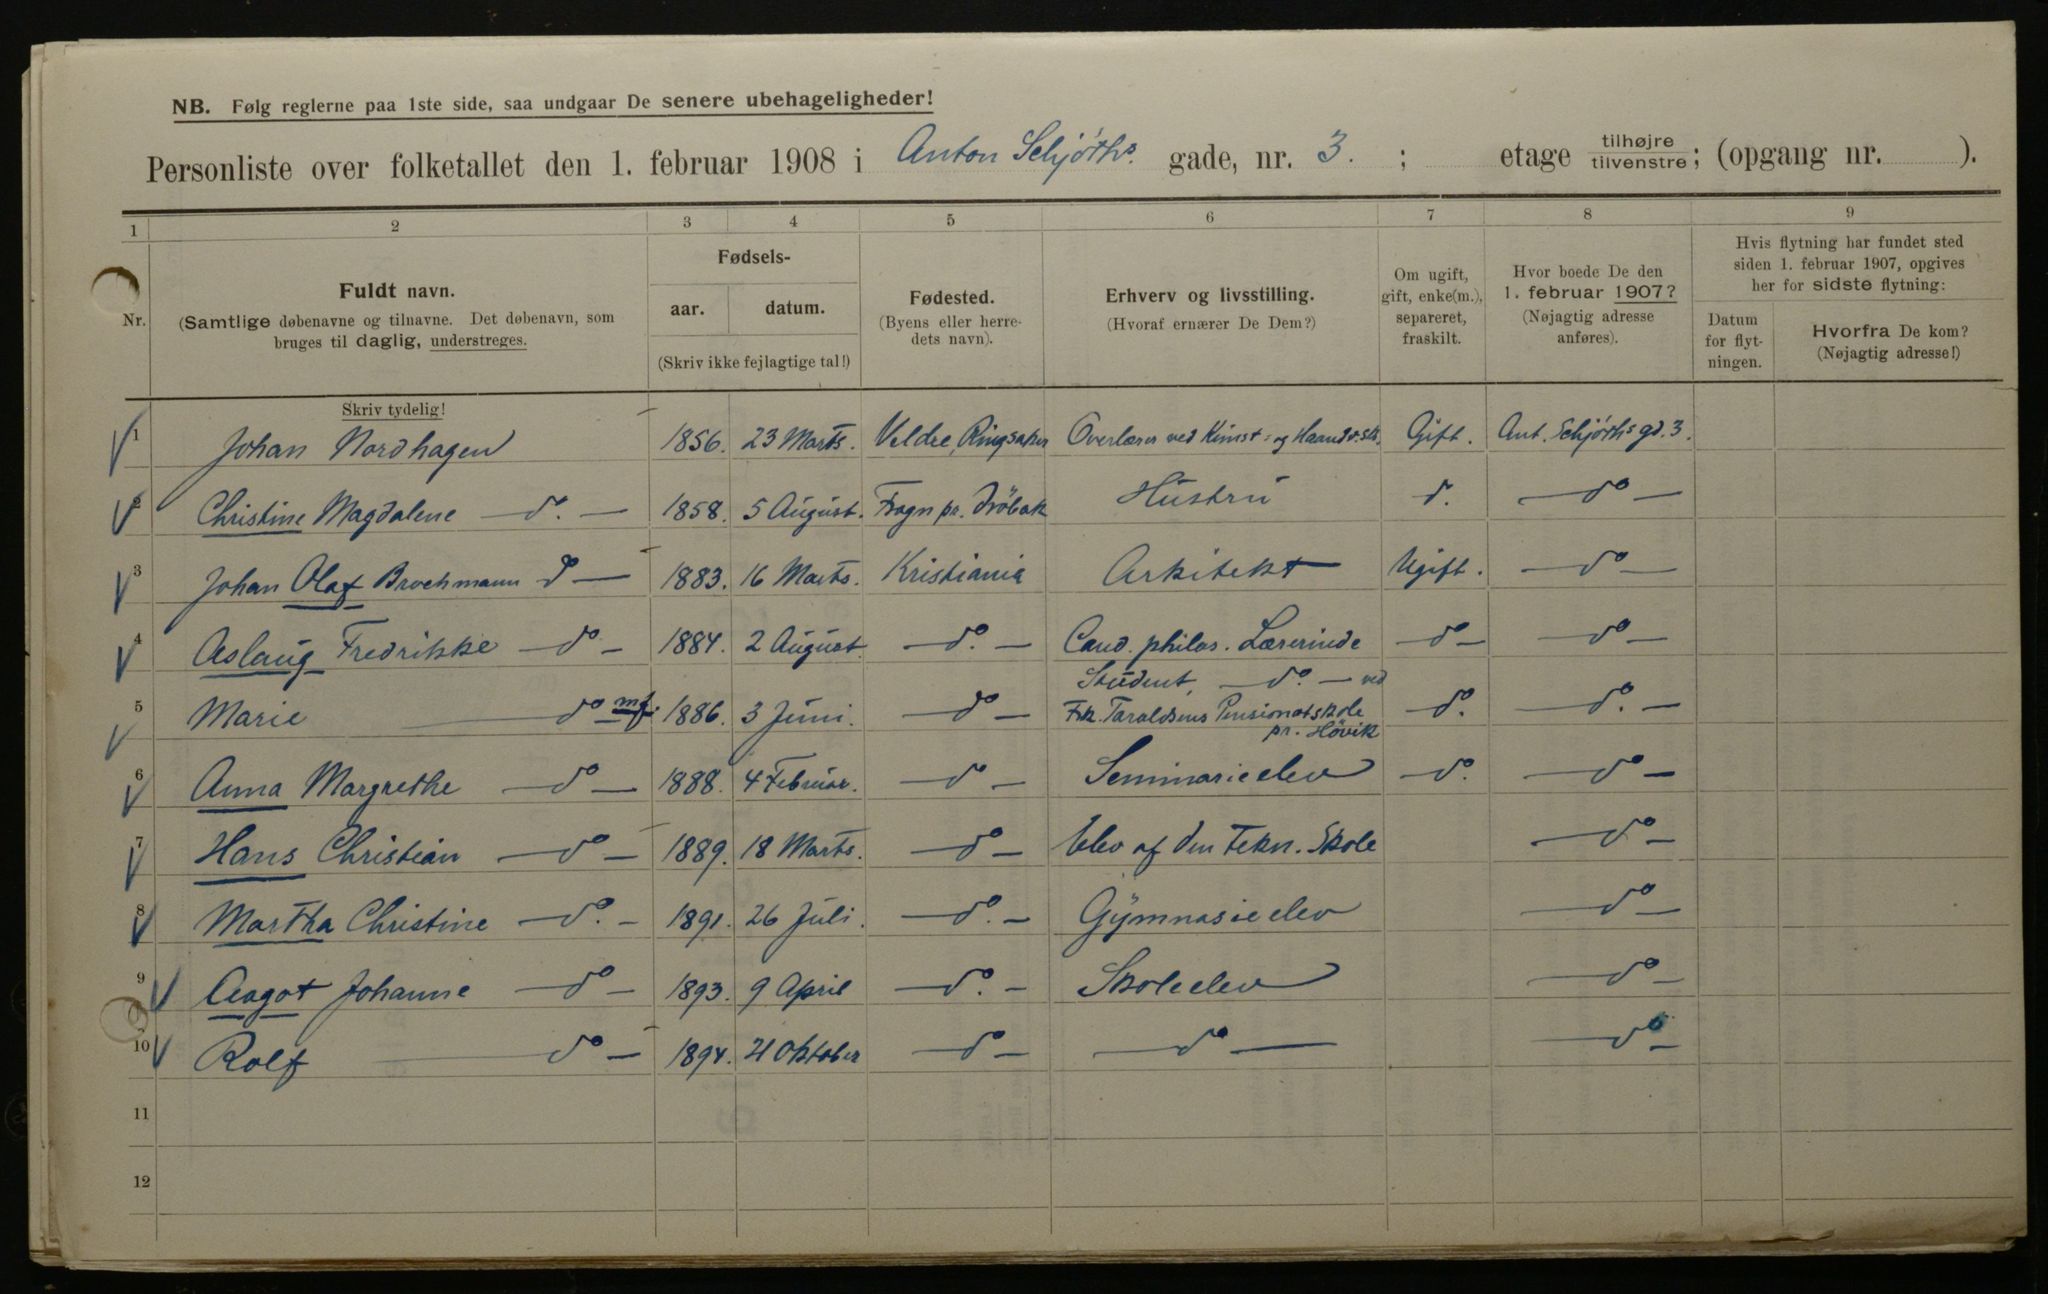 NB. Følg reglerne paa 1ste side, saa undgaar De senere ubehageligheder!
Personliste over folketallet den 1. februar 1908 i Anton Schjøths gade, nr. 3. ; etage tilhøjre tilvenstre; (opgang nr. ).
1 2 3 4 5 6 7 8 9
Nr.
Fuldt navn.
(Samtlige døbenavne og tilnavne. Det døbenavn, som
bruges til daglig, understreges.
Skriv tydelig!
Fødsels-
aar. datum.
(Skriv ikke fejlagtige tal!)
Fødested.
(Byens eller herre-
dets navn).
Erhverv og livsstilling.
(Hvoraf ernærer De Dem?)
Om ugift,
gift, enke(m.),
separeret,
fraskilt.
Hvor boede De den
1. februar 1907?
(Nøjagtig adresse
anføres).
Hvis flytning har fundet sted
siden 1. februar 1907, opgives
her for sidste flytning:
Datum
for flyt-
ningen.
Hvorfra De kom?
(Nøjagtig adresse!)
1 Johan Nordhagen 1856. 23 Marts. Veldre, Ringsaker Overlærer ved Kunst- og Haandv.sk. Gift. Ant. Schjøths gd. 3.
2 Christine Magdalene — do. — 1858. 5 August. Frogn pr. Dröbak Hustru do. — do —
3 Johan Olaf Brochmann do — 1883. 16 Marts. Kristiania Arkitekt Ugift. — do —
4 Aslaug Fredrikke — do — 1884. 2 August. — do. — Cand. philos. Lærerinde — do — — do —
5 Marie — do — mf. 1886. 3 Juni. — do — Student, — do. — ved
Frk. Taraldsens Pensionatskole
pr. Høvik do. — do. —
6 Anna Margrethe — do — 1888. 4 Februar. — do — Seminarieelev — do. — do —
7 Hans Christian — do — 1889. 18 Marts. — do — Elev af den Tekn. Skole — do —
8 Martha Christine — do. — 1891. 26 Juli. — do. — Gymnasieelev — do —
9 Aagot Johanne — do — 1893. 9 April — do. — Skoleelev — do —
10 Rolf — do — 1894. 21 Oktober — do — — do — — do —
11
12